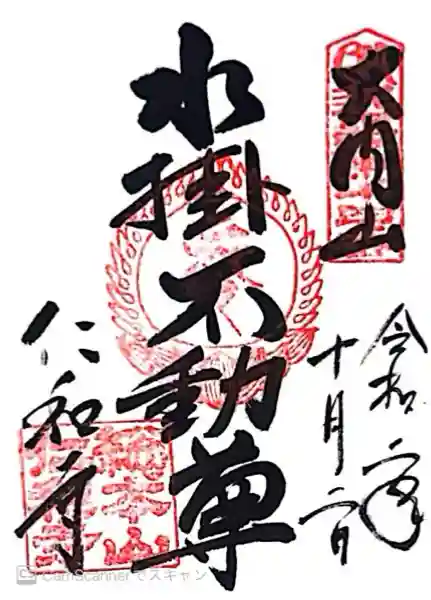 大内山
令和二年
十月二日
水掛不動尊
仁和寺
総本山
仁和寺
CS CamScannerでスキャン